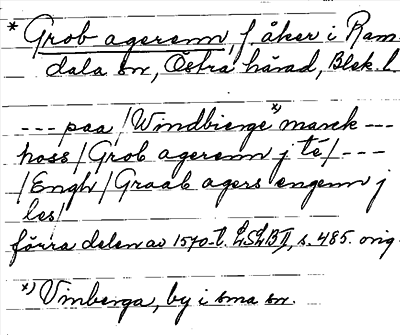 * Grob agerenn, f. åker i Ram-
dala sn, Östra härad, Blek. l.
--- paa /Windbierge x) marck ---
hoss /Grob agerenn j té/ ---
/Engh/ Graab agers engenn j
les/
förra delen av 1570-t. LSLB II, s. 485. orig.
x) Vinberga, by i sma sn.